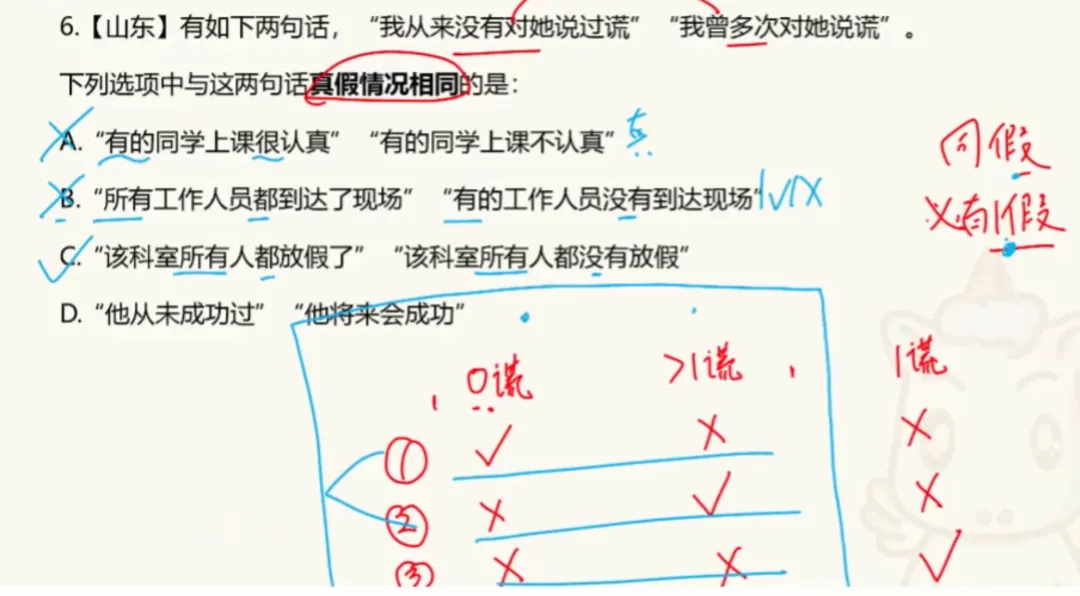 6.【山东】有如下两句话，“我从来没有对她说过谎”“我曾多次对她说谎”。
下列选项中与这两句话真假情况相同的是：
A.“有的同学上课很认真”“有的同学上课不认真” 真
B.“所有工作人员都到达了现场”“有的工作人员没有到达现场” 1√1X
C.“该科室所有人都放假了”“该科室所有人都没有放假”
D.“他从未成功过”“他将来会成功”
同假
必有1假
0谎 >1谎 1谎
① ✓ X X
② X ✓ X
③ X X ✓